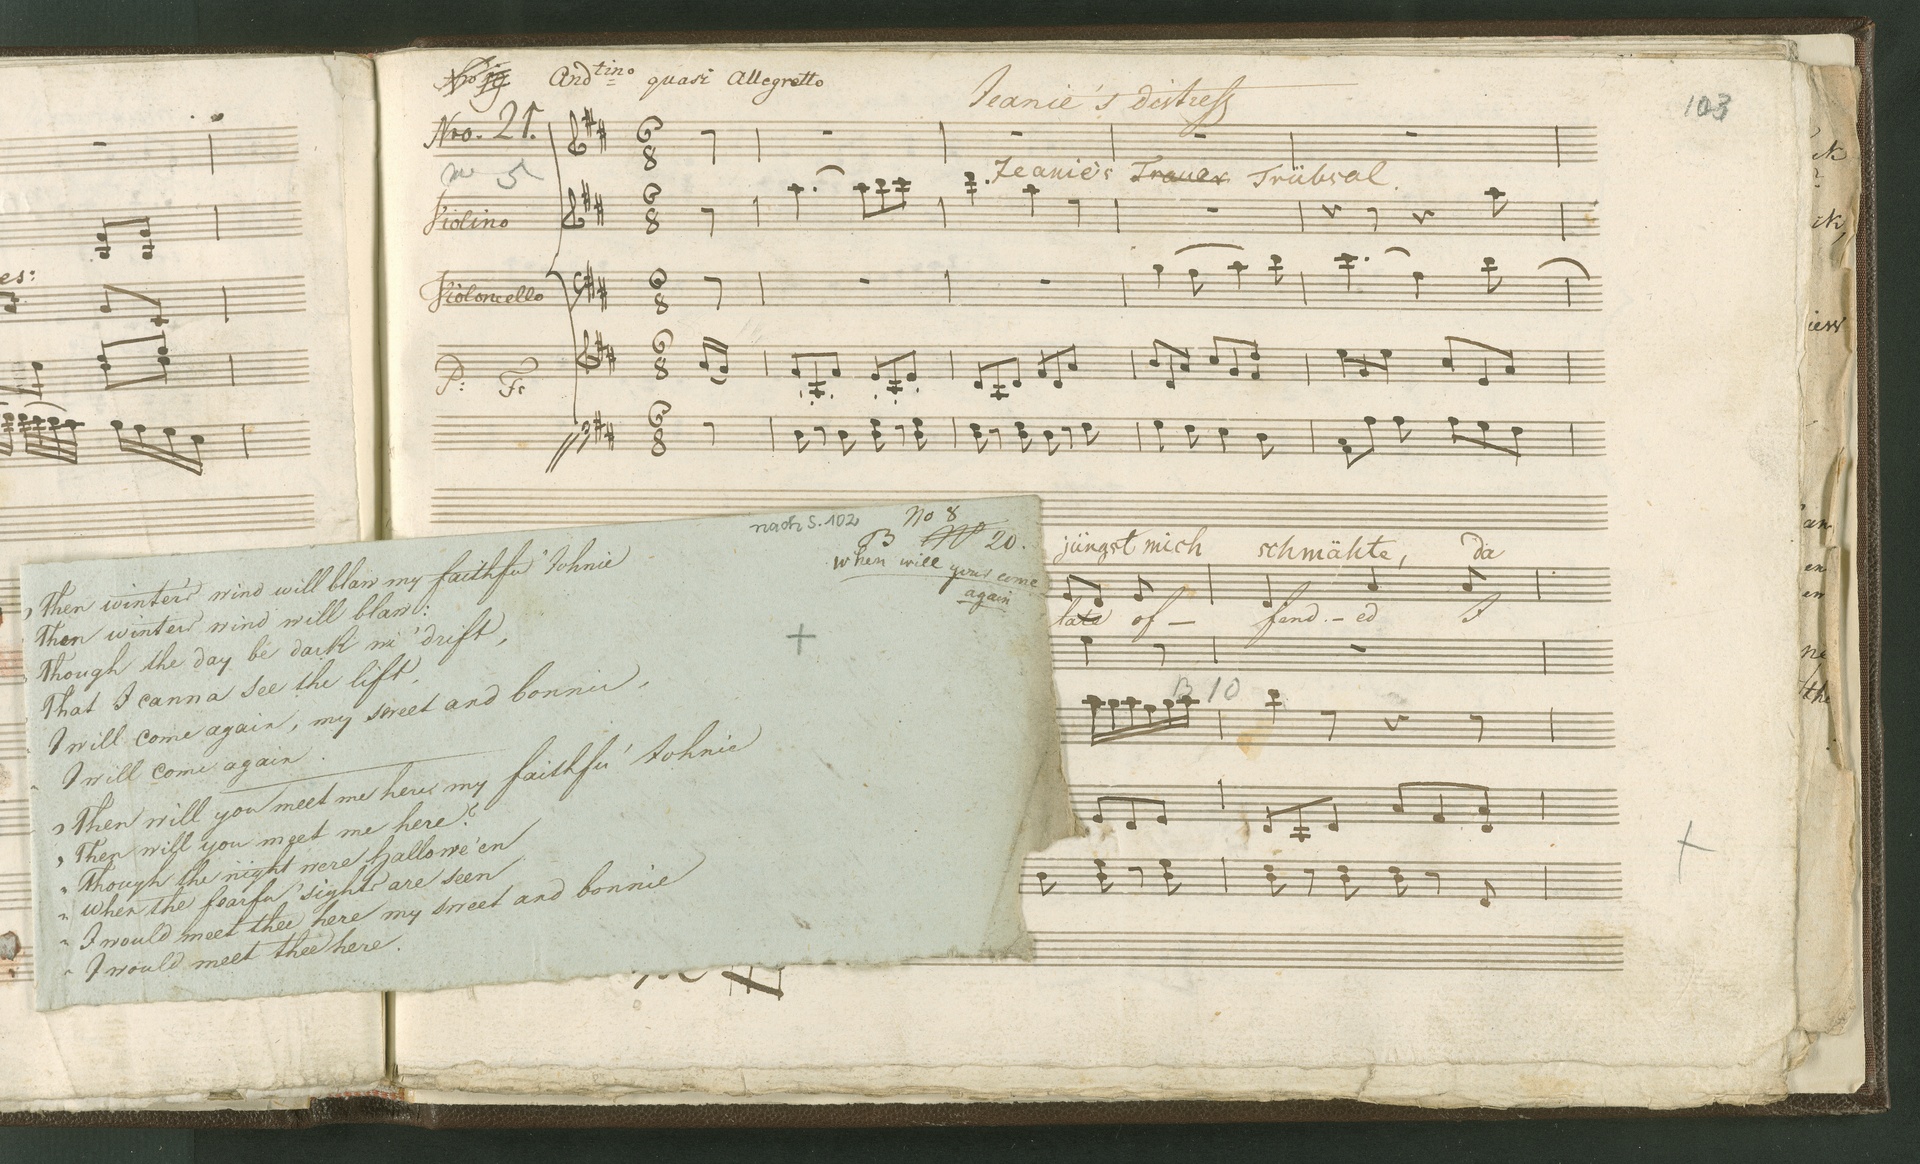 Andtino quasi Allegretto
Jeanie's distress
103
Nro. 21.
Jeanie's Trauer Trübsal.
Violino
Violoncello
es:
P: Fr
nach S. 102
No 8
B No 20.
when will you come
again
jüngst mich schmähte, da
late of — fend. - ed I
B 10
Then winter's wind will blaw my faithfu' Johnie
Then winter's wind will blaw:
Though the day be dark wi' drift,
That I canna see the lift,
I will come again, my sweet and bonnie,
I will come again.
Then will you meet me here, my faithfu' Johnie
Then will you meet me here?
Though the night were hallowe'en
when the fearfu' sights are seen
I would meet thee here my sweet and bonnie
I would meet thee here.